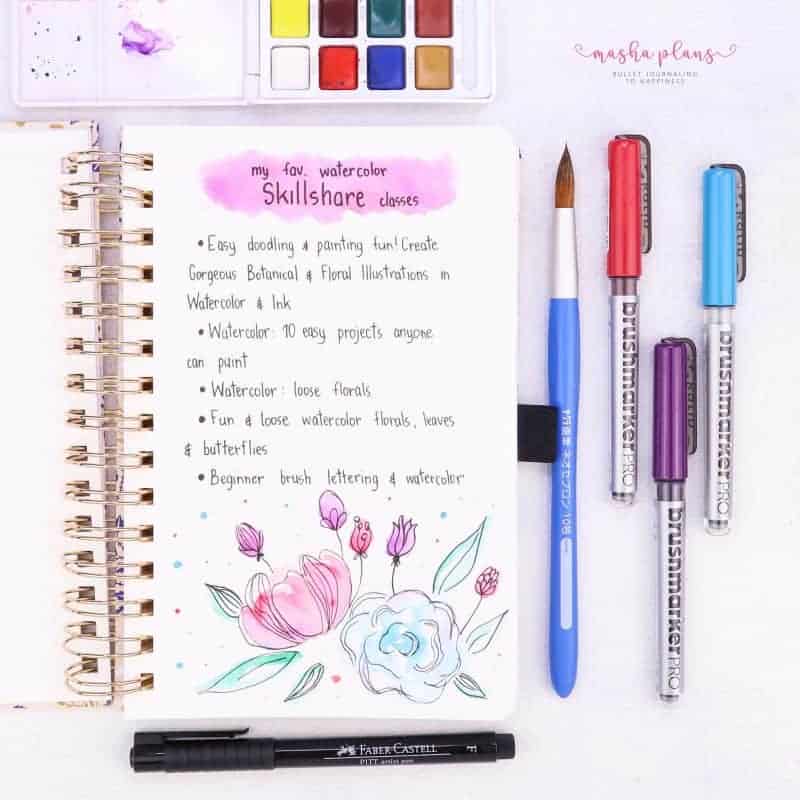 masha plans
BULLET JOURNALING
TO HAPPINESS
my fav. watercolor
Skillshare classes
• Easy doodling & painting fun! Create
Gorgeous Botanical & Floral Illustrations in
Watercolor & Ink
• Watercolor: 10 easy projects anyone
can paint
• Watercolor: loose florals
• Fun & loose watercolor florals, leaves
& butterflies
• Beginner brush lettering & watercolor
brushmarkerPRO
brushmarkerPRO
brushmarkerPRO
karin
karin
karin
ネオセブロン 10号
FABER-CASTELL
PITT artist pen
F